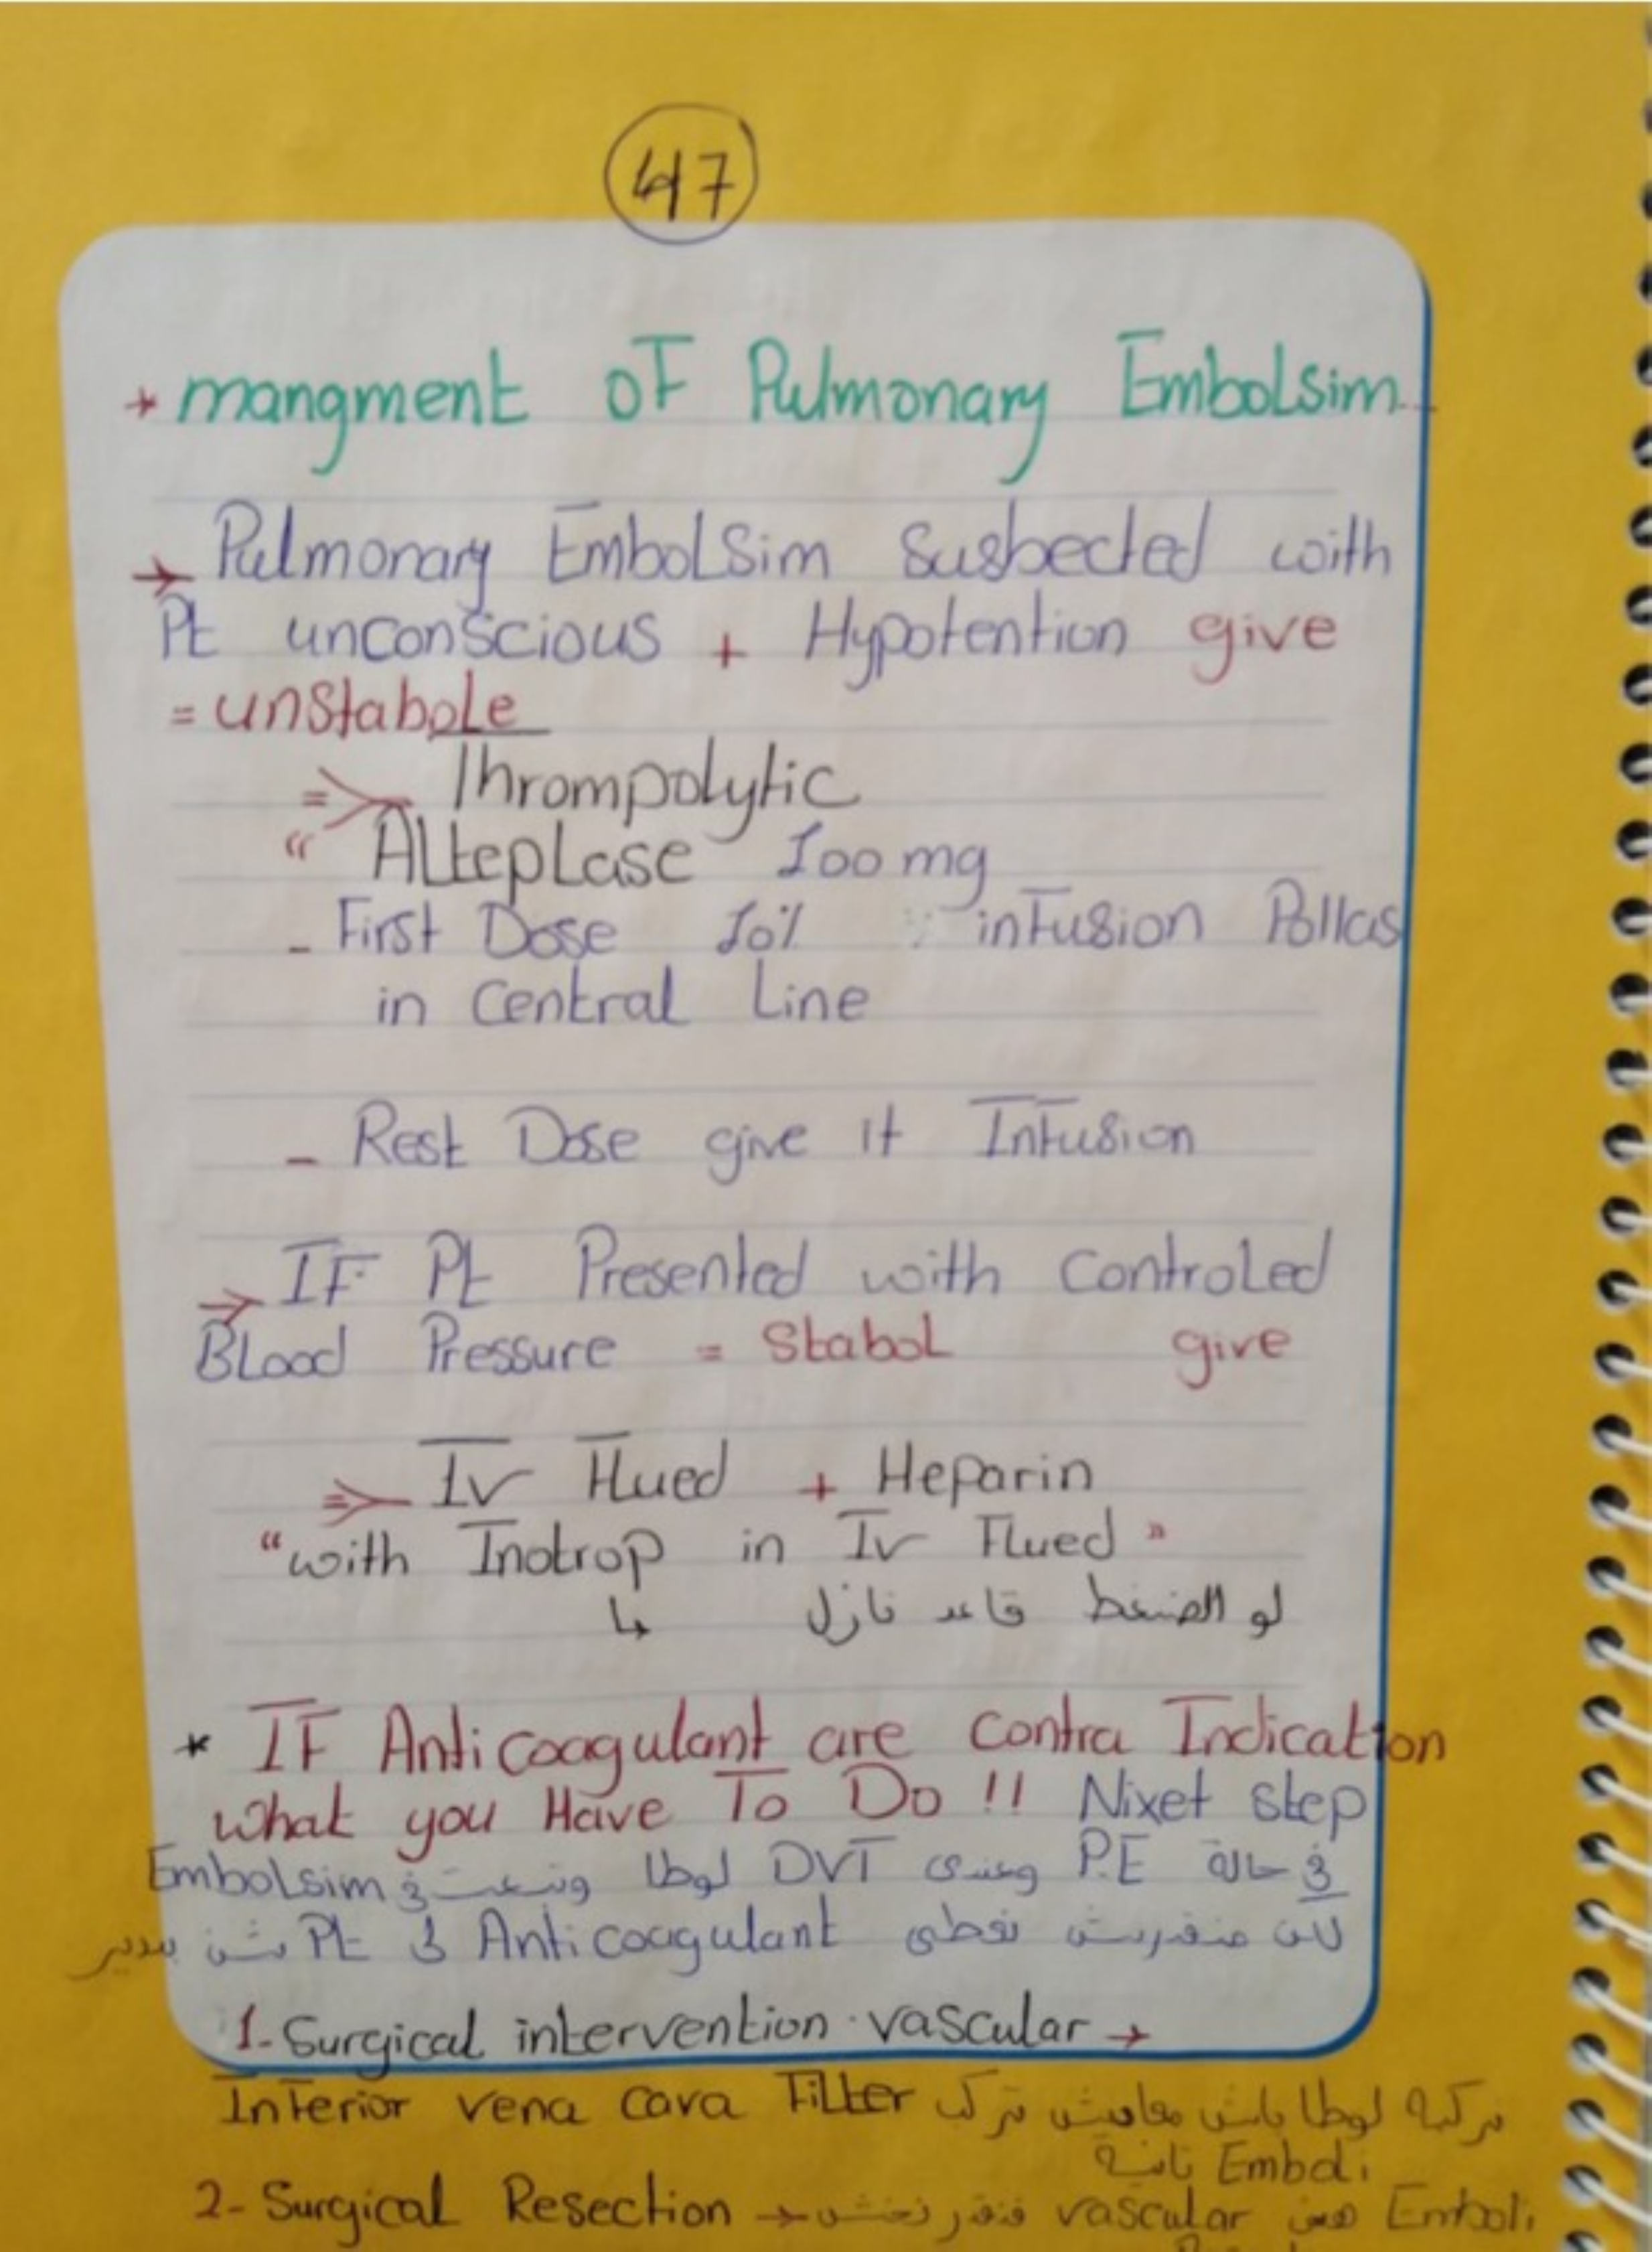 47
* mangment of Pulmonary Embolsim
→ Pulmonary Embolsim Susbected with
Pt unconscious + Hypotention give
= unstabole
⇒ Thrompolytic
“ Alteplase 100 mg
- First Dose 10% infusion Pollas
in Central Line
- Rest Dose give it Infusion
→ IF Pt Presented with Controled
Blood Pressure = Stabol give
⇒ Iv Flued + Heparin
“with Inotrop in Iv Flued”
↳ لو الضغط قاعد نازل
* IF Anticoagulant are Contra Indication
what you Have To Do !! Nixet step
في حالة P.E وعندى DVT لوطا وتبعت في Embolsim
لكن منقدرش نعطى Anticoagulant لى Pt شن بندير
1- Surgical intervention vascular →
Inferior vena cava Filter تركبه لوطا باش معادش تركب
Emboli ثانية
2- Surgical Resection → vascular Emboli